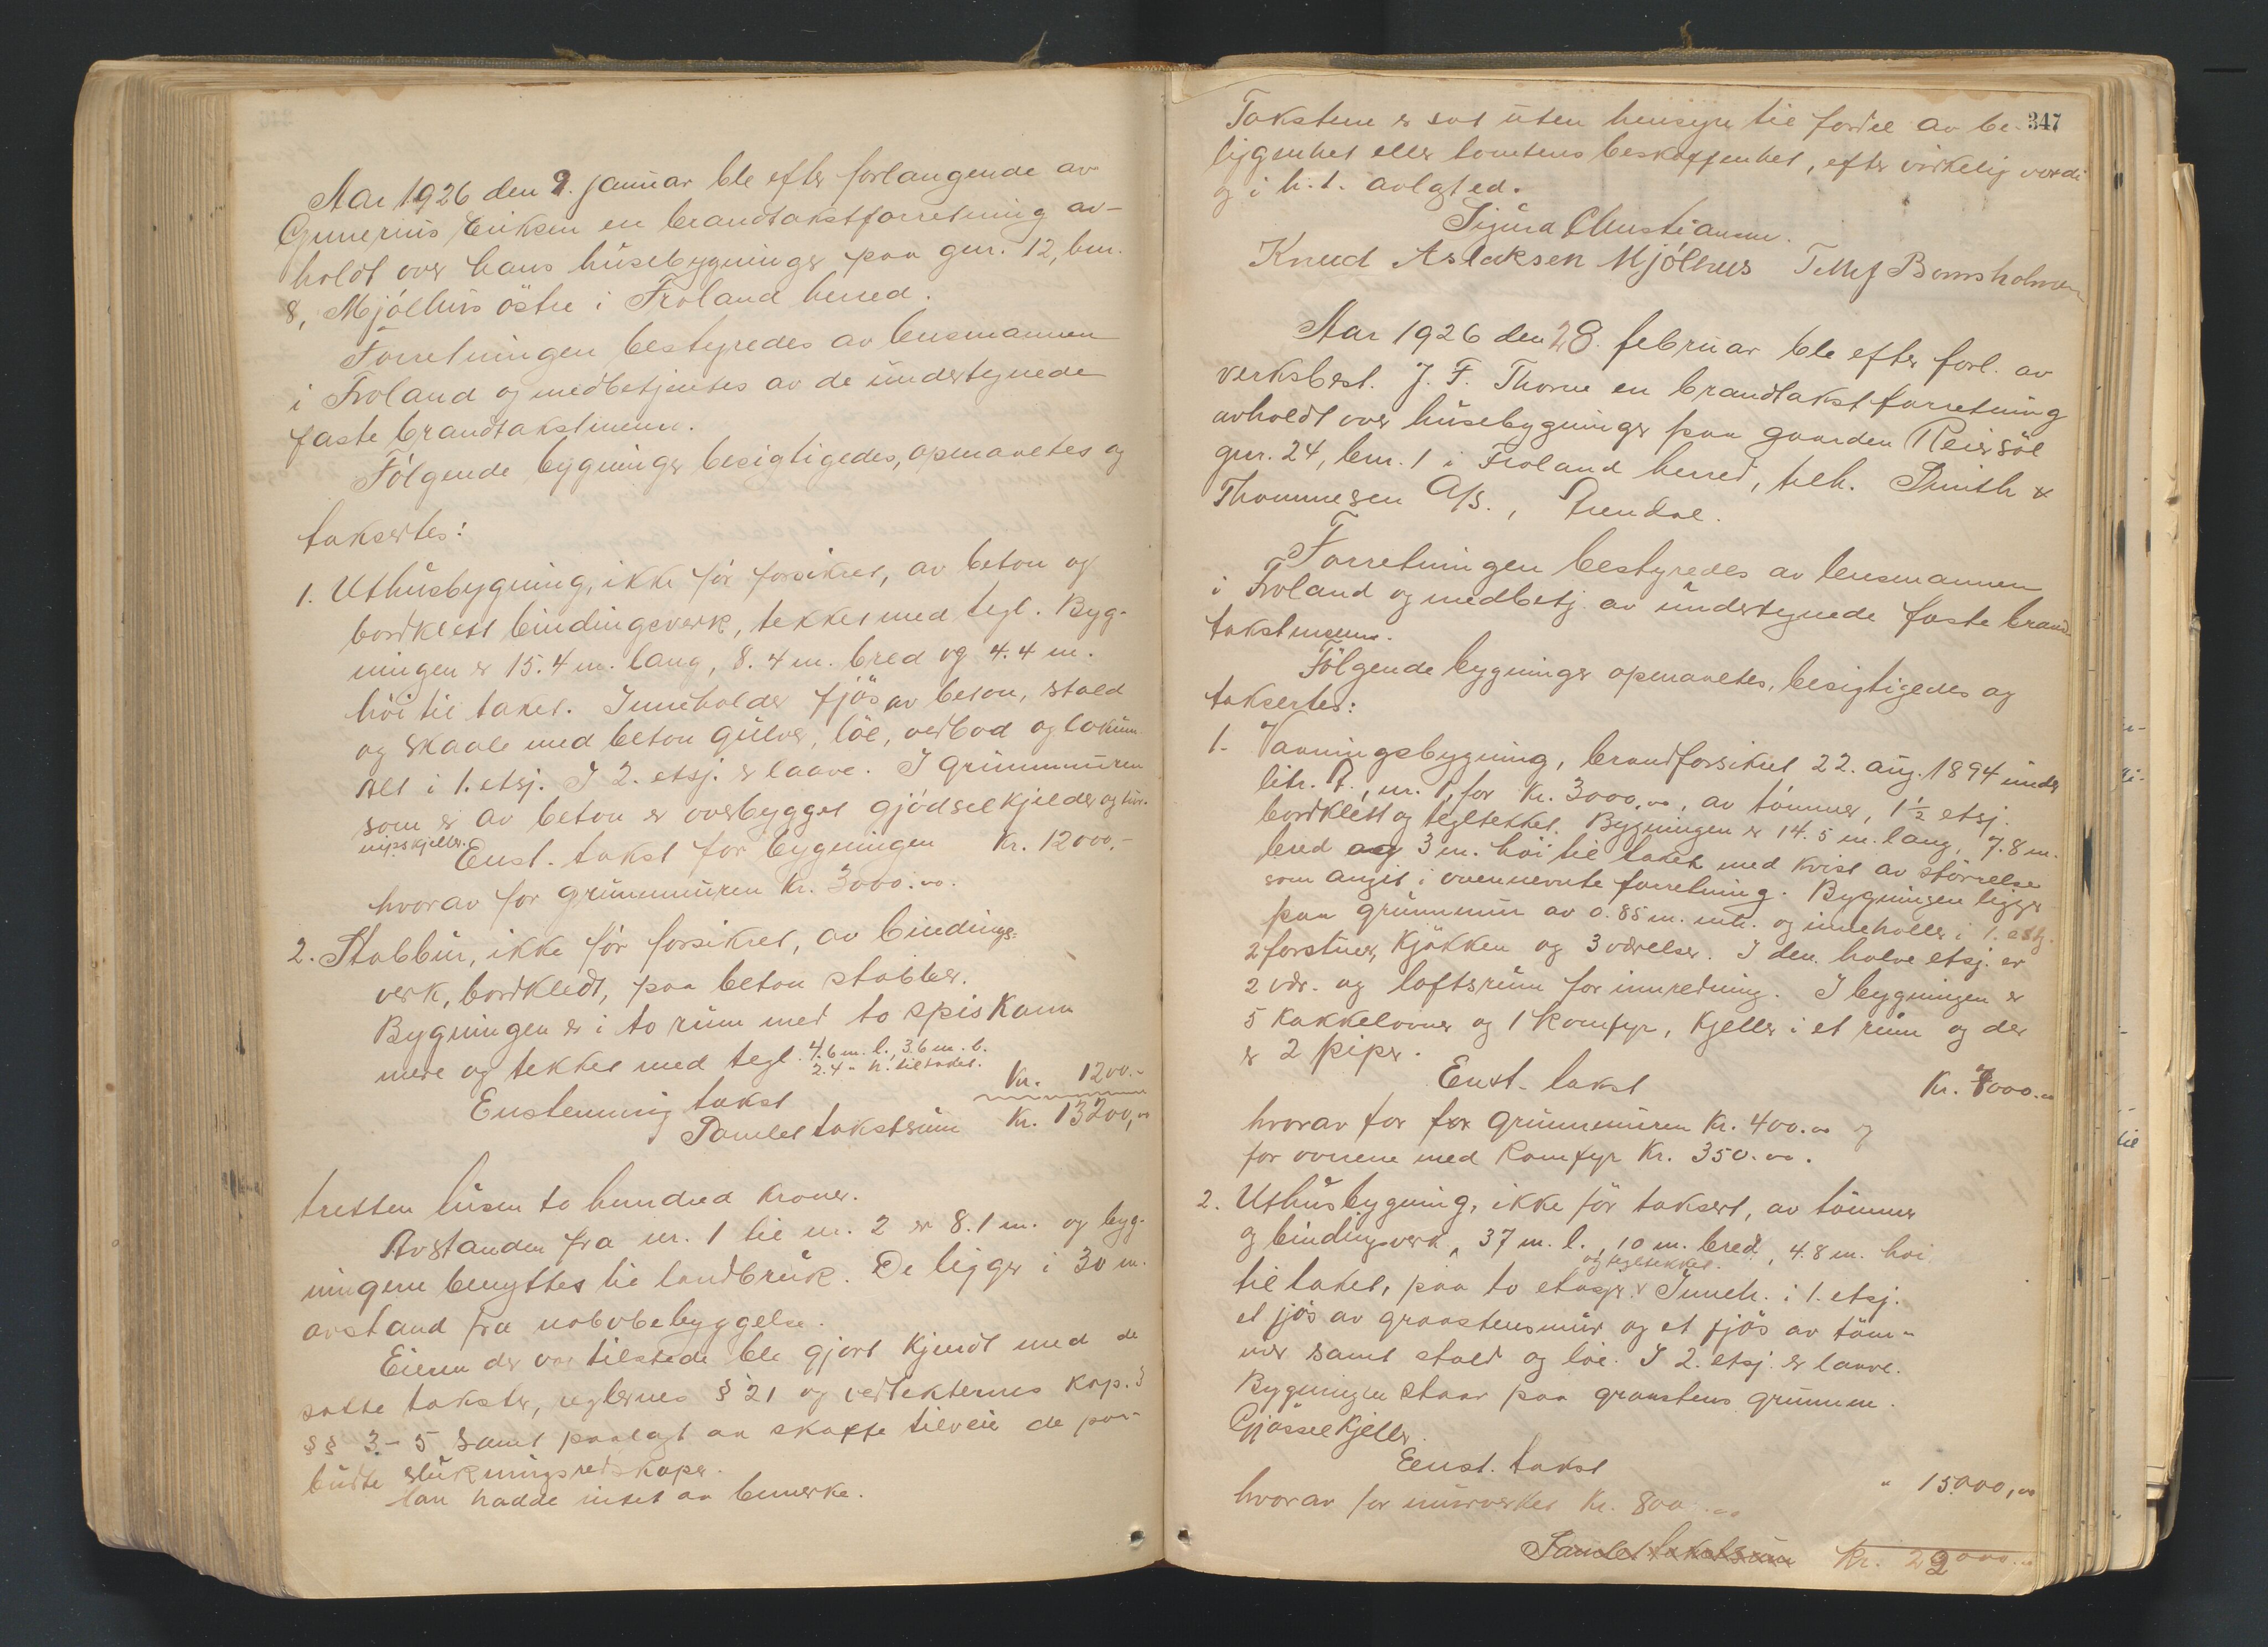 Aar 1926 den 9. januar ble efter forlangende av
Gunerius Eriksen en brandtakstforretning av-
holdt over hans husebygninger paa gnr. 12, bnr.
8, Mjólhus östre i Froland herred.
Forretningen bestyredes av lensmannen
i Froland og medbetjentes av de undertegnede
faste brandtakstmenn.
Fólgende bygninger besigtigedes, opmaaltes og
taksertes:
1. Uthusbygning, ikke fór forsikret, av beton og
bordklett bindingsverk, tekket med tegl. Byg-
ningen er 15.4 m. lang, 8.4 m. bred og 4.4 m.
hói til taket. Inneholder fjös av beton, stald
og skaale med beton gulver, lóe, vedbod og lokum
alt i 1. etsj. I 2. etsj. er laave. I grunnmuren
som er av beton er overbygget gjódselkjelder og tur-
nipskjeller.
Enst. takst for bygningen Kr. 12000.-
hvorav for grunnmuren Kr. 3000.00.
2. Stabbur, ikke fór forsikret, av bindings-
verk, bordkledt, paa beton stabber.
Bygningen er i to rum med to spiskam
mere og tekket med tegl. 4.6 m. l., 3.6 m. b.
2.4 " h. til taket.
Enstemmig takst Kr. 1200.-
Samlet takstsum Kr. 13200,00
tretten tusen to hundred kroner.
Avstanden fra nr. 1 til nr. 2 er 8.1 m. og byg-
ningene benyttes til landbruk. De ligger i 30 m.
avstand fra nabobebyggelse.
Eieren der var tilstede ble gjort kjendt med de
satte takster, reglernes § 21 og vedtekternes kap. 3
§§ 3-5 samt paalagt aa skaffe tilveie de paa-
budte slukningsredskaper.
Han hadde intet aa bemerke.
347
Takstene er sat uten hensyn til fordel av be-
liggenhet eller tomtens beskaffenhet, efter virkelig verdi
og i h. t. avlagt ed.
Sigurd Christiansen.
Knud Aslaksen Mjólhus Tellef Bomsholmen
Aar 1926 den 28. februar ble efter forl. av
verksbest. J. F. Thorne en brandtakst forretning
avholdt over husebygninger paa gaarden Reirsöl
gnr. 24, bnr. 1 i Froland herred, tilh. Smith &
Thommesen A/S., Arendal.
Forretningen bestyredes av lensmannen
i Froland og medbetj. av undertegnede faste brand
takstmenn.
Fölgende bygninger opmaaltes, besigtigedes og
taksertes:
1. Vaaningsbygning, brandforsikret 22. aug. 1894 under
litr. A., nr. 1, for Kr. 3000.00, av tómmer, 1½ etsj.
bordklett og tegltekket. Bygningen er 14.5 m. lang, 7.8 m.
bred og 3 m. hói til taket med kvist av stórrelse
som angit i ovennevnte forretning. Bygningen ligger
paa grunnmur av 0.85 m. mtr. og inneholler i 1. etsj.
2 forstuer, kjökken og 3 værelser. I den halve etsj. er
2 vær. og loftsrum for innredning. I bygningen er
5 kakkelovner og 1 komfyr, kjeller i et rum og der
er 2 piper.
Enst. takst Kr. 7000.00
hvorav for for grunnmuren Kr. 400.00 og
for ovnene med komfyr Kr. 350.00.
2. Uthusbygning, ikke för taksert, av tömmer
og bindingsverk, 37 m. l., 10 m. bred, 4.8 m. hói
og tegltekket.
til taket, paa to etasjer. Inneh. i 1. etsj.
et fjös av graastensmur og et fjös av töm-
mer samt stald og lóe. I 2. etsj. er laave.
Bygningen staar paa graastens grunnm.
Gjódselkjeller.
Enst. takst " 15.000,00
hvorav for murverket Kr. 800.00
Samlet takstsum Kr. 22000.00